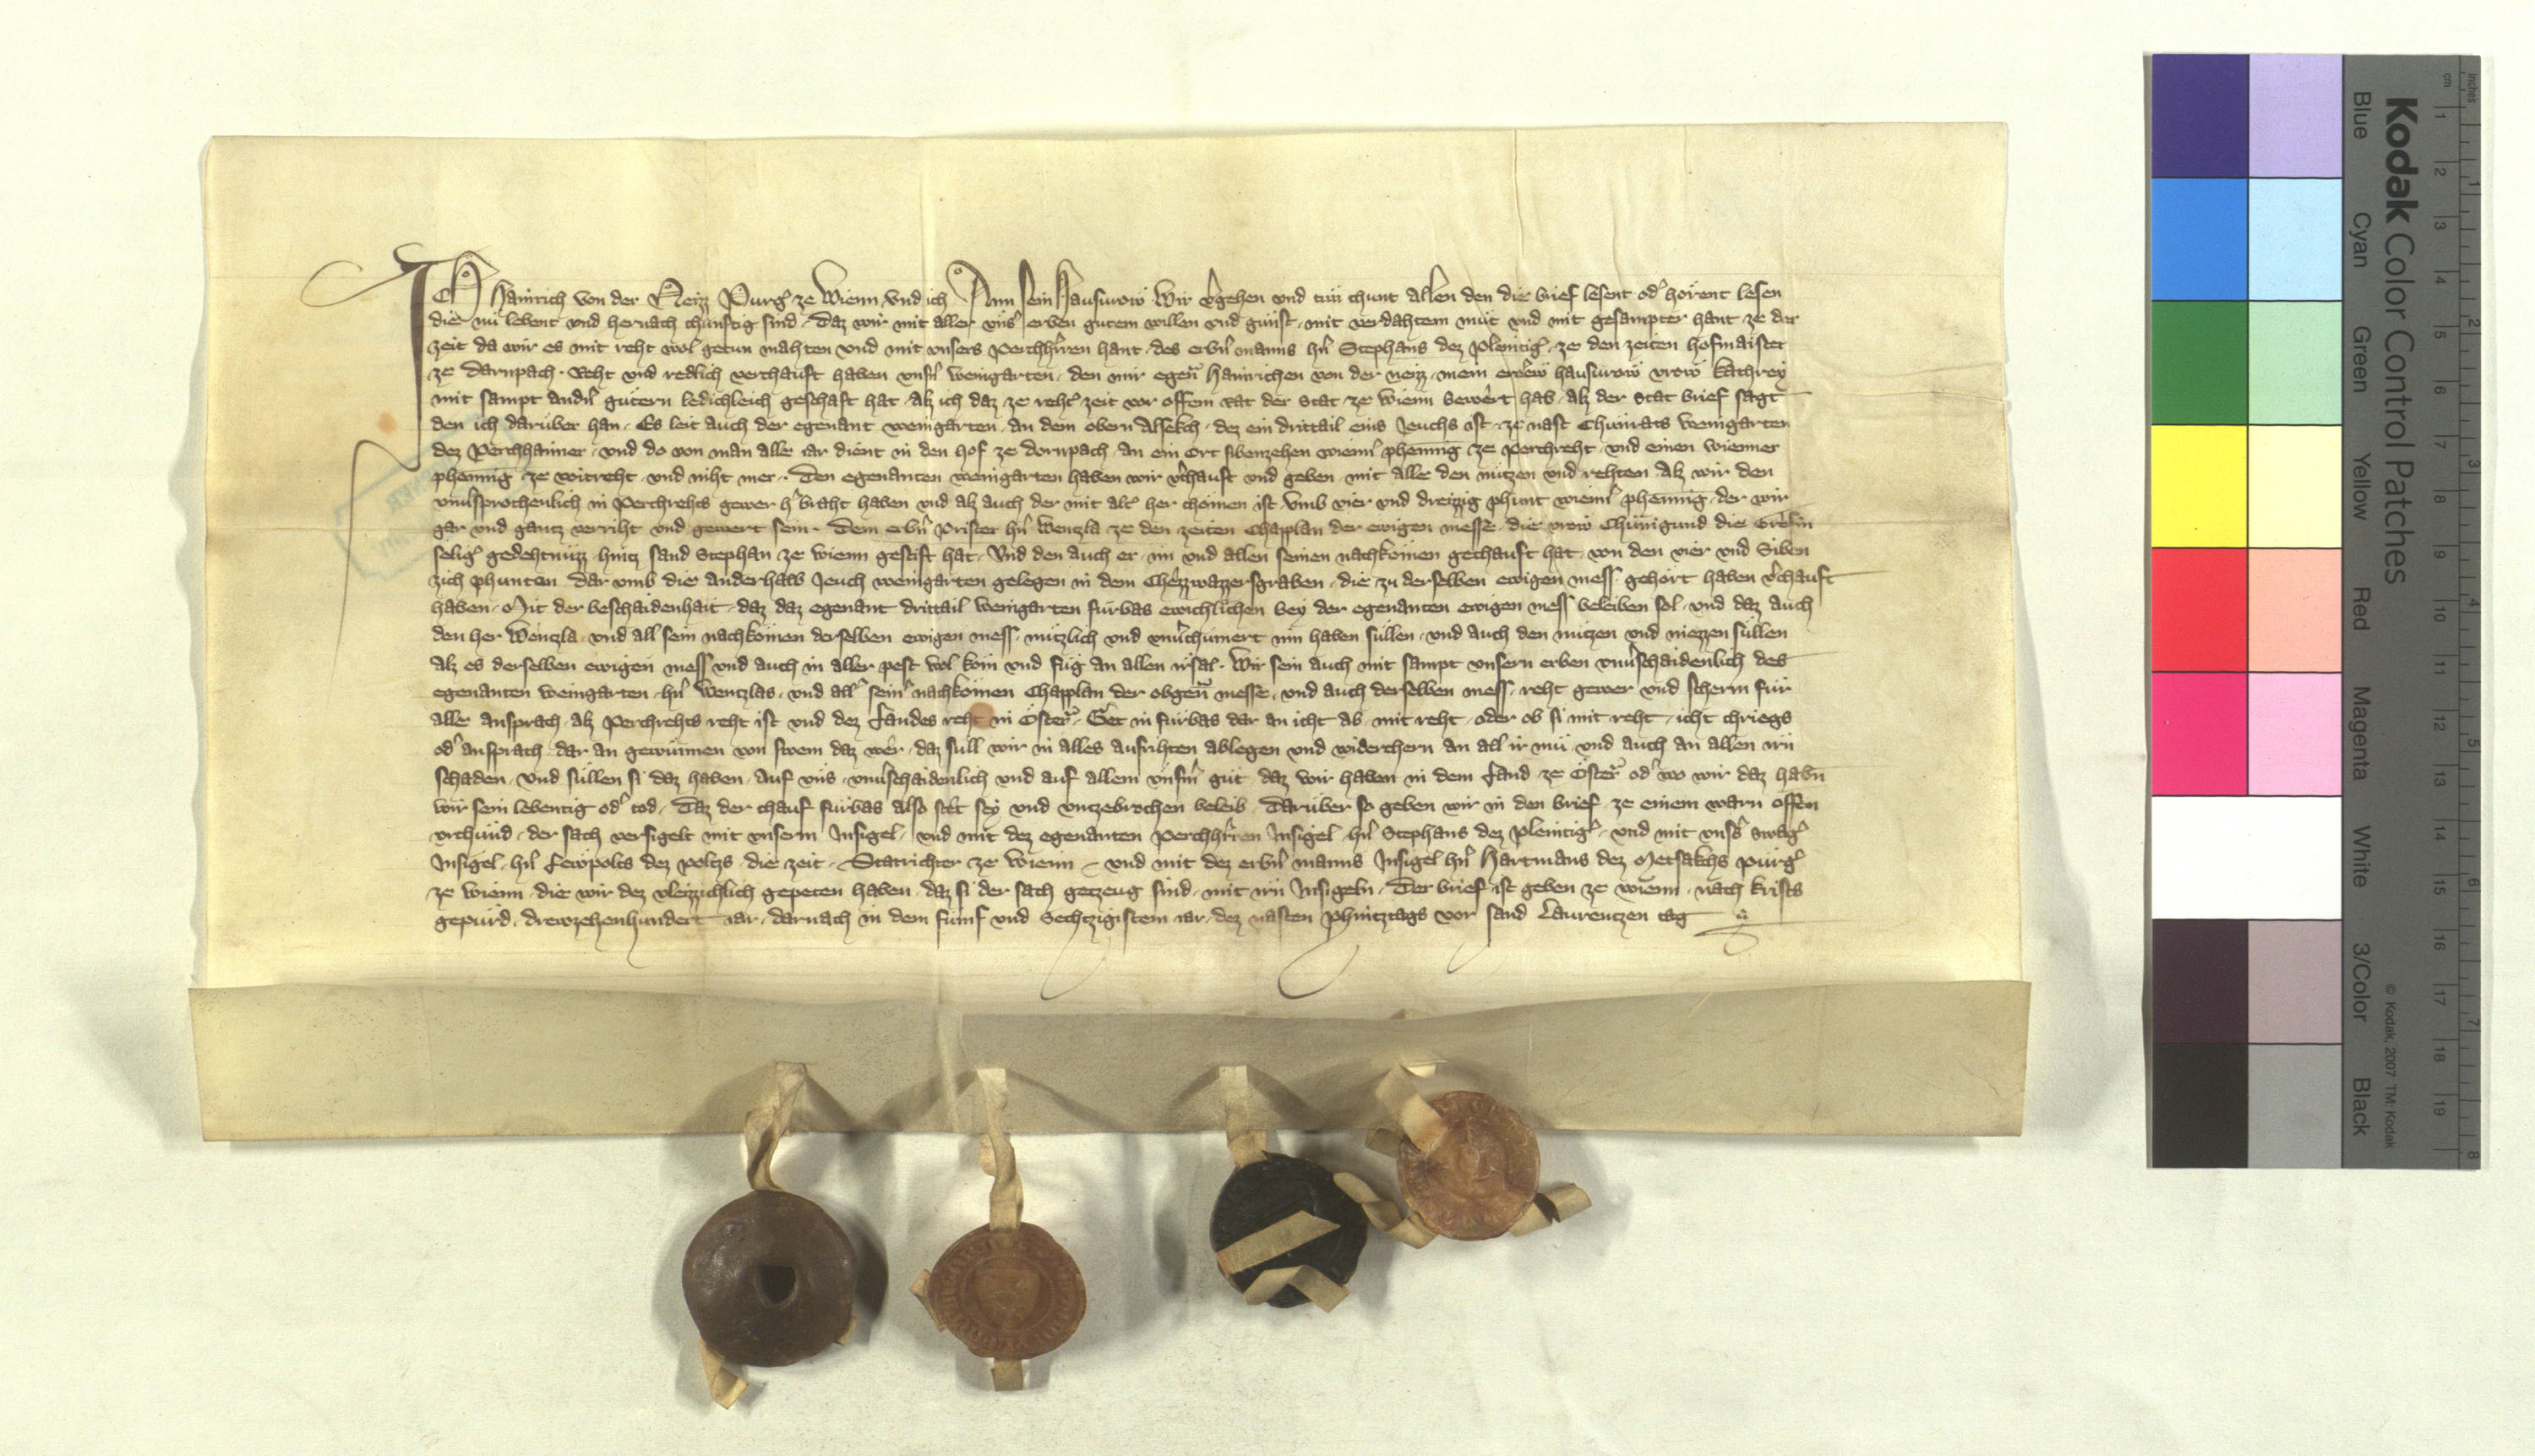 ICH Hainrich von der Neizz Purg̕ ze Wienn vnd ich Ann sein Hausvrow Wir v̕gehen vnd tün chunt allen den die brief lesent od̕ hörent lesen
die nü lebent vnd hernach chünftig sind, daz wir mit aller vns̕ erben gutem willen vnd günst, mit verdahtem müt vnd mit gesampter hant, ze der
zeit da wir es mit reht wol getun mahten vnd mit vnsers Perchh̕ren hant, des erb̕n manns h̕n Stephans dez Pleintig̕, ze den zeiten hofmaister
ze Darnpach, Reht vnd redlich verchauft haben vns̕n weingarten, den mir egen̄ Hainrichen von der neizz, mein erew̕ hausvrow vrow Kathrey
mit sampt and̕n gütern ledichleich geschaft hat, alz ich daz ze reht̕ zeit vor offem rat der Stat ze Wienn bewert hab, alz der Stat brief sagt
den ich darüber han, Es leit auch der egenant weingarten, an dem obern Alsekch, dez ein drittail eins Jeuchs ist, ze nast Chünrats weingarten
dez Perchhaimer, vnd do von man alle iar dient in den Hof ze dornpach, an ein Ort sibenzehen wienn̕ phenning ze Perchreht, vnd einen wienner
phenning ze voitreht, vnd niht mer, Den egenanten weingarten haben wir v̕chauft vnd geben, mit alle den nützen vnd rehten, Alz wir den
vnu̕sprochenlich in Perchrehts gewer h̕braht haben vnd alz auch der mit alt̕ her chömen ist, Vmb vier vnd dreizzig phunt wienn̕ phenning, der wir
gar vnd gantz verriht vnd gewert sein, Dem erb̕n Prister h̕n Wenzla, ze den zeiten Chapplan der ewigen messe, die vrow Chünigund die
selig̕ gedehtnüzz, hintz sand Stephan ze wienn gestift hat, Vnd den auch er, im vnd allen seinen nachkömen gechauft hat, von den vier vnd Siben
zich phunten, dar vmb die anderhalb Jeuch weingarten gelegen in dem Chezzwazzersgraben, die zu derselben ewigen mess, gehört haben v̕chauft
haben, Mit der beschaidenhait, daz daz egenant drittail weingarten fürbas ewichlichen bey der egenanten ewigen mess beleiben sol, vnd daz auch
den her Wenzla, vnd all sein nachkömen derselben ewigen mess, nützlich vnd vnu̕chümert inn haben süllen, vnd auch den nützen vnd niezzen süllen
Alz es derselben ewigen mess vnd auch in aller pest wol köm vnd füg an allen irsal, Wir sein auch mit sampt vnsern erben vnu̕schaidenlich des
egenanten weingarten, h̕n Wentzlas, vnd all̕ sein̕ nachkömen Chapplan der obgen̄ messe, vnd auch derselben mess, reht gewer vnd scherm für
alle ansprach, alz Perchrehts reht ist vnd dez Landes reht in Öster̕, Get in fürbas dar an icht ab, mit reht, oder ob si mit reht, icht chriegs
od̕ ansprach, dar an gewünnen von swem daz wer, daz süll wir in alles ausrihten ablegen vnd widerchern an all ir mü, vnd auch an allen irn
schaden, vnd süllen si daz haben, auf vns, vnu̕schaidenlich vnd auf allem vnserm güt, daz wir haben in dem Land ze Öster̕ od̕ wo wir daz habn̄
wir sein lebentig od̕ tod, Daz der chauf fürbas also stet sey vnd vnzebrochen beleib, Darüber so geben wir in den brief, ze einem warn offen
vrchünd, der sach versigelt mit vnserm Insigel, vnd mit dez egenanten Perchh̕ren Insigel, h̕n Stephans dez Pleintig̕, vnd mit vns̕s swag̕
Insigel, h̕n Lewpolts dez Poltzs, die zeit, Statrichter ze wienn, vnd mit dez erb̕n manns Insigel h̕n Hartmans dez Metsakhs purg̕
ze wienn, die wir dez vleizzichlich gepeten haben, daz si der sach getzeug sind, mit irn Insigeln, Der brief ist geben ze wienn, nach krists
gepürd, drewzehenhundert iar, darnach in dem fünf vnd Sechtzigistem iar, dez nasten Phintztags vor sand Laurentzen tag
Kodak Color Control Patches
Blue Cyan Green Yellow Red Magenta White 3/Color Black
© Kodak, 2007 TM: Kodak
cm 1 2 3 4 5 6 7 8 9 10 11 12 13 14 15 16 17 18 19
inches 1 2 3 4 5 6 7 8